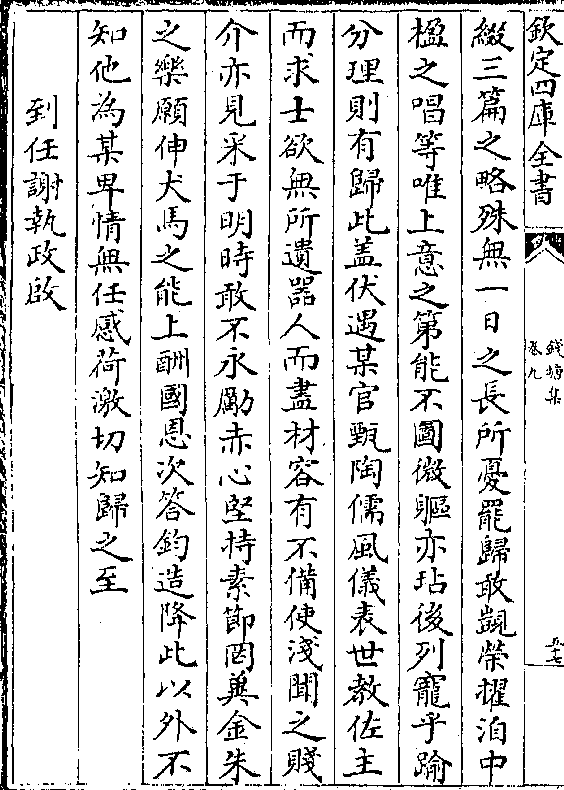 欽定四庫全書
錢塘集
卷九
五十七
綴三篇之略殊無一日之長所憂罷歸敢覬榮擢洎中
楹之唱等唯上意之第能不圖微軀亦玷後列寵乎踰
分理則有歸此盖伏遇某官甄陶儒風儀表世教佐主
而求士欲無所遺器人而盡材容有不備使淺聞之賤
介亦見采于明時敢不永勵赤心堅持素節罔兾金朱
之樂願伸犬馬之能上酬國恩次答鈞造降此以外不
知他為某卑情無任感荷激切知歸之至
到任謝執政啟